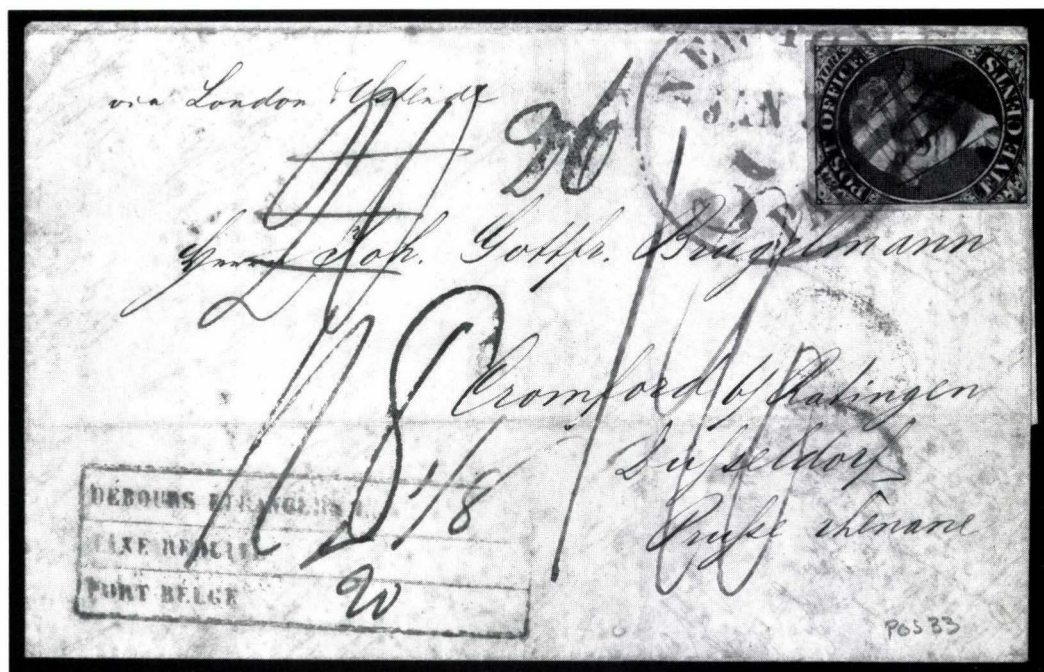 via London & Ostende
NEW YORK
JAN
POST OFFICE
FIVE CENTS
Herrn Joh. Gottfr. Brügelmann
Cromford b/ Ratingen
Dusseldorf
Prusse rhénane
18 1/8
DÉBOURS ETRANGERS
TAXE REDUITE
PORT BELGE 20
POS 33